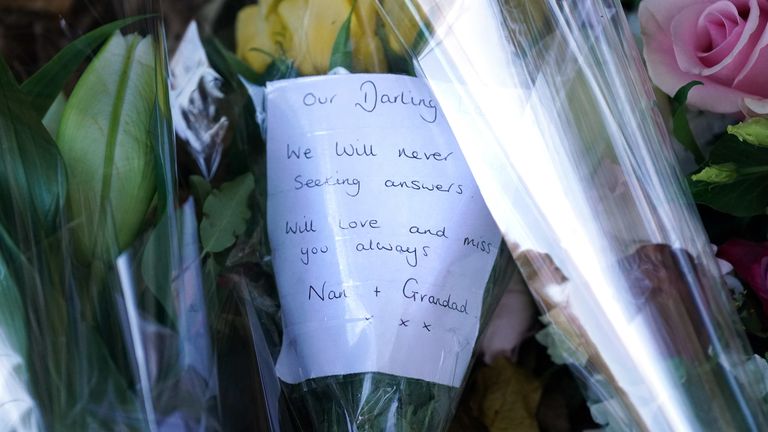 Our Darling
We Will never
Seeking answers.
Will Love and miss
you always
Nan + Grandad
x x x